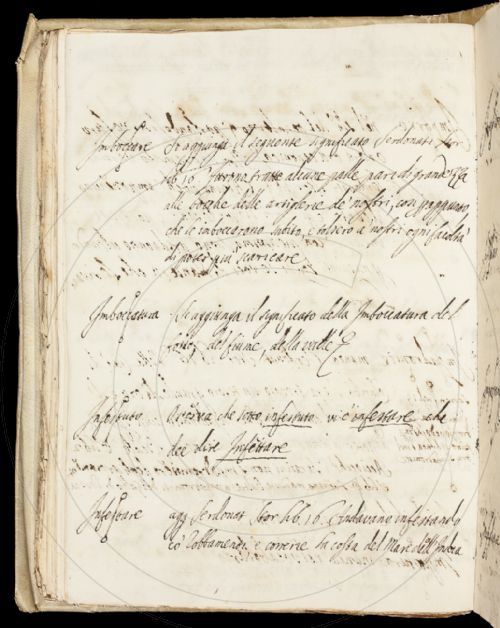 Imboccare Si aggiunga il seguente significato Serdonati Stor
lib. 16. furono tratte alcune palle pare di grandezza
alle bocche delle artiglierie de nostri, con
che le imboccarono subito, e tolsero a nostri ogni facoltà
di poter più scaricare
Imboccatura Si aggiunga il significato della Imboccatura del
forte, del fiume, della valle
Infestuto Osserva che sotto infestuto vi è infestare che
dee dire Infettare
Infestare agg Serdonat Stor lib. 16. Andavano infestando
co' e correrie la costa del Mare dell'India